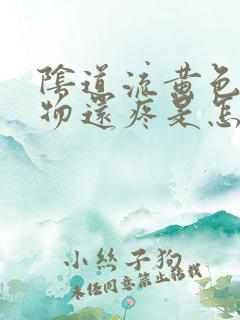 陰道流黃色
物還疼是怎
小絲子狗
未经同意禁止转载